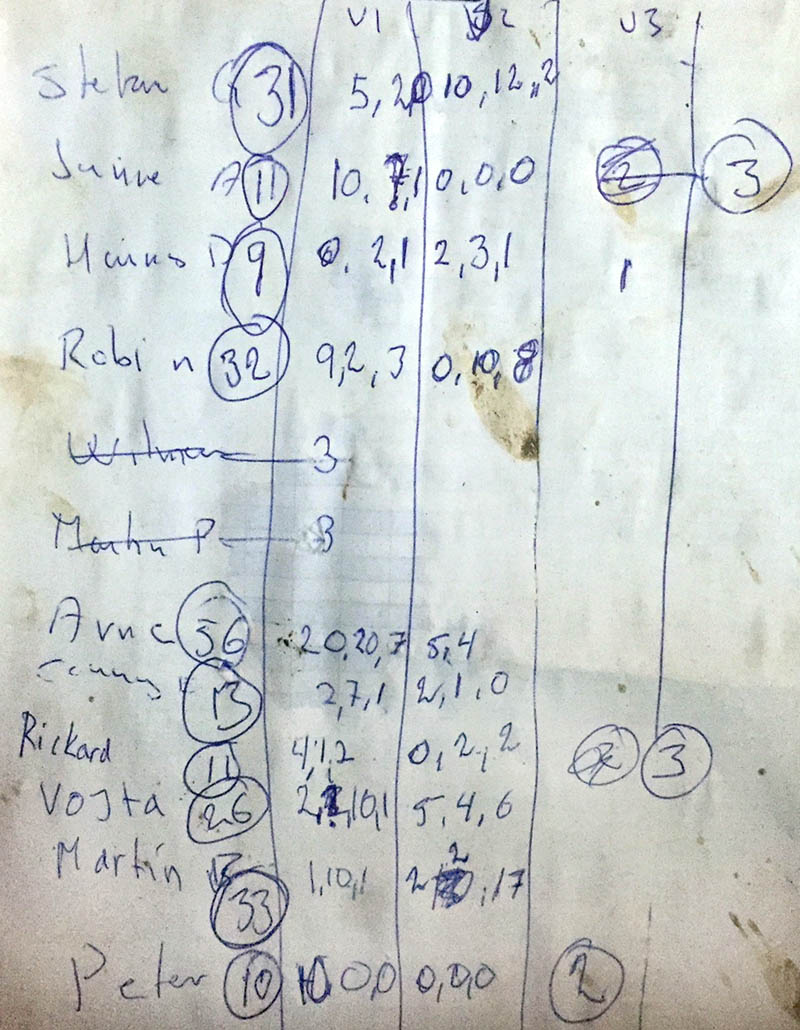 V1 2 V3
Stefan 31 5, 20 10, 12, 2
A 11 10, 7, 1 0, 0, 0 2 3
Hannes D 9 0, 2, 1 2, 3, 1 1
Robin 32 9, 2, 3 0, 10, 8
3
Martin P 3
Arne 56 20, 20, 7 5, 4
13 2, 7, 1 2, 1, 0
Rickard 11 4, 1, 2 0, 2, 2 3
Vojta 26 2, 10, 1 5, 4, 6
Martin B 33 1, 10, 1 2, 2, 17
Peter 10 10, 0, 0 0, 0, 0 2